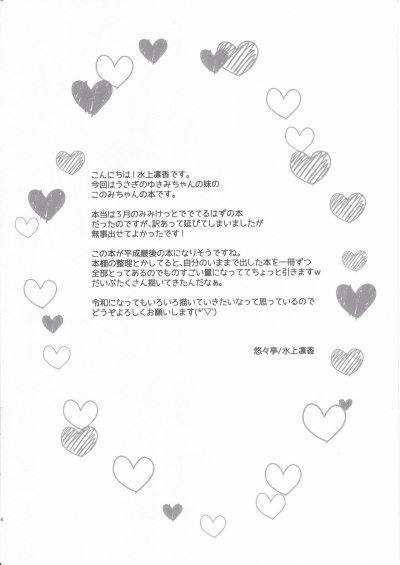 こんにちは！水上凛香です。
今回はうさぎのゆきみちゃんの妹の
このみちゃんの本です。
本当は３月のみみけっとででてるはずの本
だったのですが、訳あって延びてしまいましたが
無事出せてよかったです！
この本が平成最後の本になりそうですね。
本棚の整理とかしてると、自分のいままで出した本を一冊ずつ
全部とってあるのでものすごい量になっててちょっと引きますｗ
だいぶたくさん描いてきたんだなぁ。
令和になってもいろいろ描いていきたいなって思っているので
どうぞよろしくお願いします(*'▽')
悠々亭/水上凛香